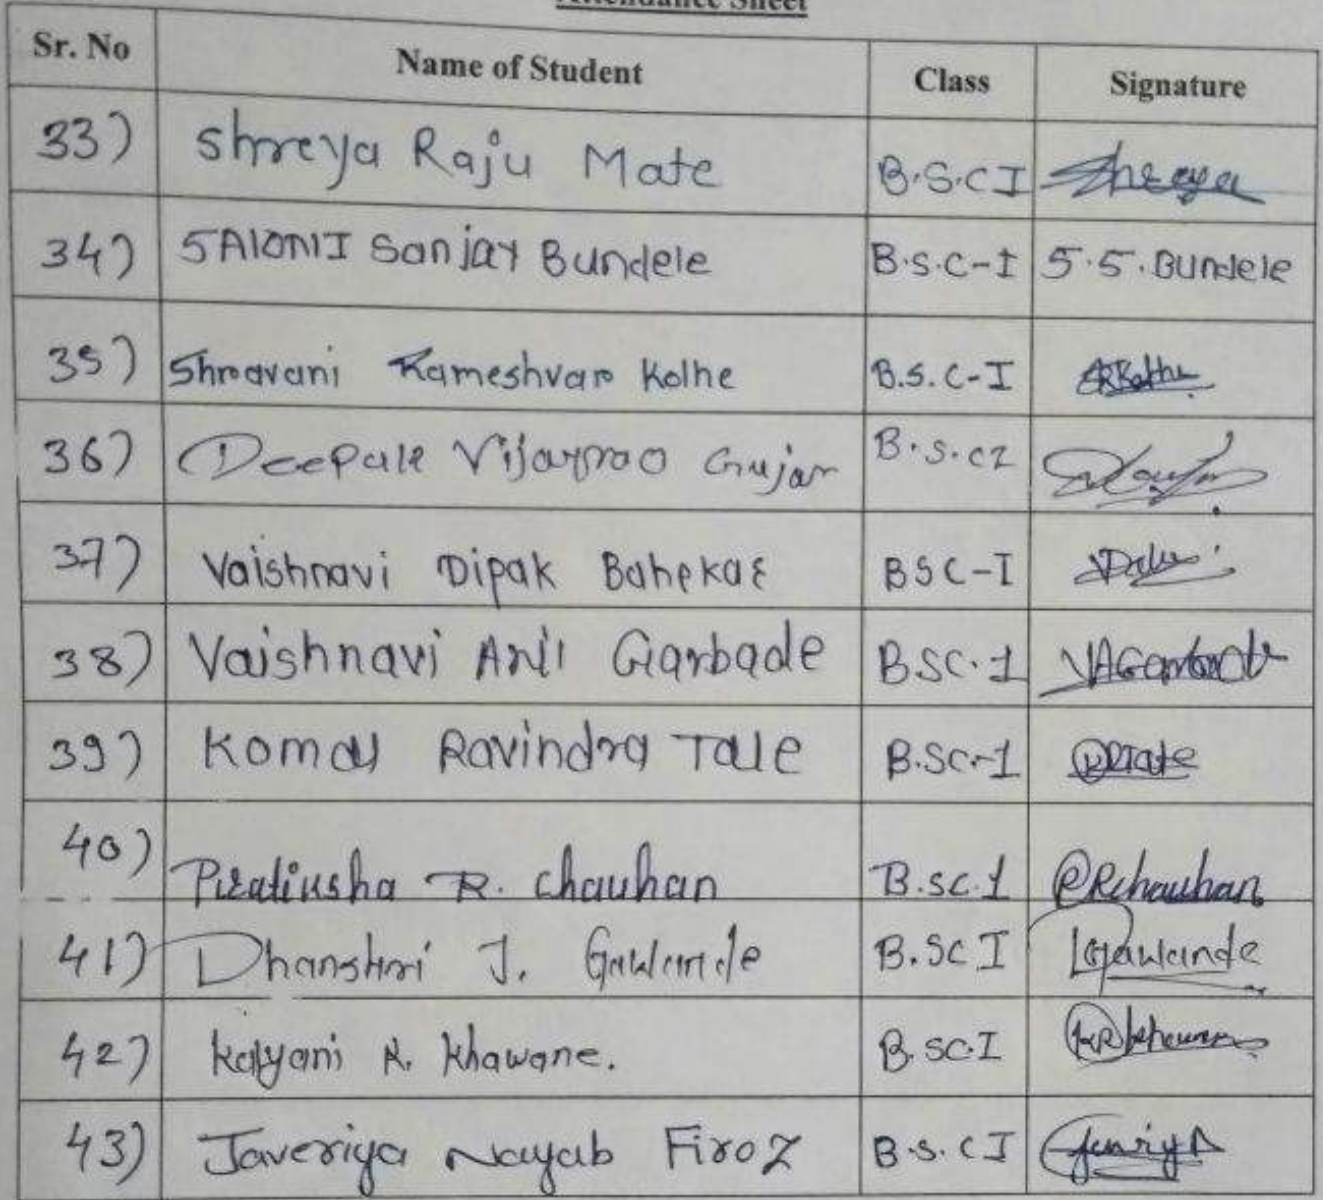 Attendance Sheet
Sr. No Name of Student Class Signature
33) Shreya Raju Mate B.S.C I Shreya
34) SALONI Sanjay Bundele B.S.C-I S.S.Bundele
35) Shravani Rameshvar Kolhe B.S.C-I SRKolhe
36) Deepale Vijayrao Gujar B.S.CI
37) Vaishnavi Dipak Bahekar BSC-I
38) Vaishnavi Anil Garbade B.SC.1 VAGarbade
39) Komal Ravindra Tale B.SC.-1 KRTale
40) Pratiksha R. Chauhan B.SC.1 PRChauhan
41) Dhanshri J. Gawande B.SC I DJGawande
42) Kalyani R. Khawane. B.SC.I KRKhawane
43) Javeriya Nayab Firoz B.S.C I